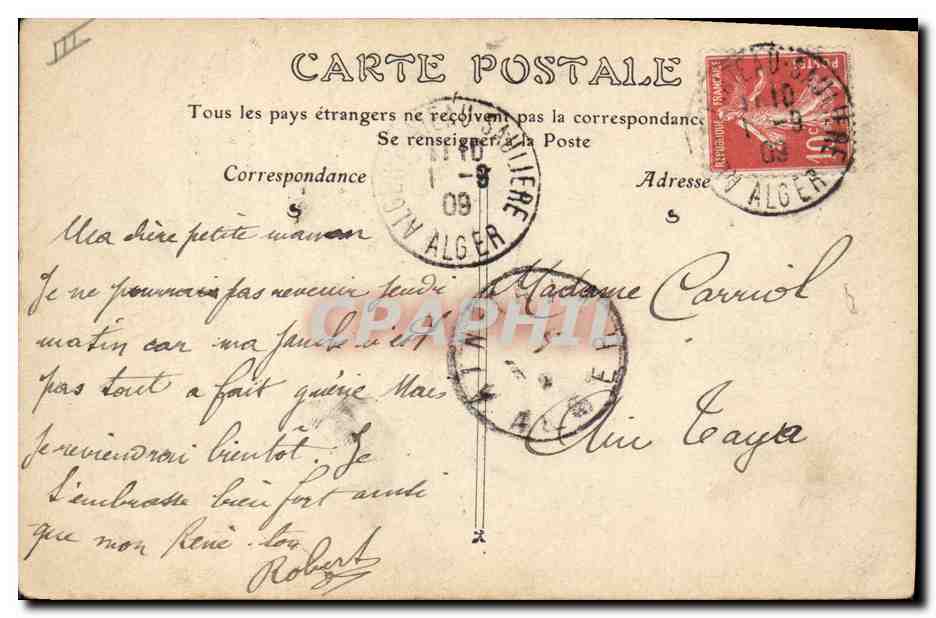 III
CARTE POSTALE
Tous les pays étrangers ne reçoivent pas la correspondance
Se renseigner à la Poste
Correspondance
Adresse
RÉPUBLIQUE FRANÇAISE
POSTES
10 c
EAU-SAULIERE
11 10
1 -9
09
ALGER
EAU-SAULIERE
11 10
1 -9
09
ALGER
Ma chère petite maman
Je ne pourrai pas revenir jeudi
matin car ma jambe n'est
pas tout a fait guérie Mais
je reviendrai bientôt. Je
t'embrasse bien fort ainsi
que mon René. ton
Robert
Madame Carriol
Ain Taya
CPAPHIL